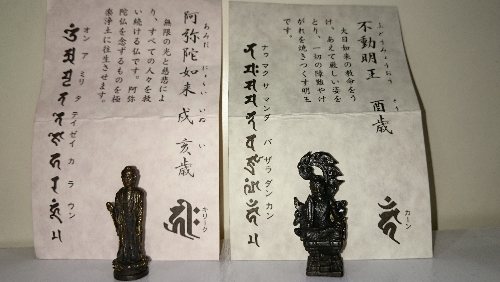 阿弥陀如来 戌 亥歳
あみだ にょらい いぬ い
無限の光と慈悲によ
り、すべての人々を救
い続ける仏です。阿弥
陀仏を念ずるものを極
楽浄土に往生させます。
オン ア ミリ タ テイ ゼイ カ ラ ウン
キリーク
不動明王 酉歳
ふどうみょうおう とり
大日如来の教命をう
け、あえて厳しい姿を
とり、一切の障難やけ
がれを焼きつくす明王
です。
ナウ マク サ マン ダ バ ザラ ダン カン
カーン